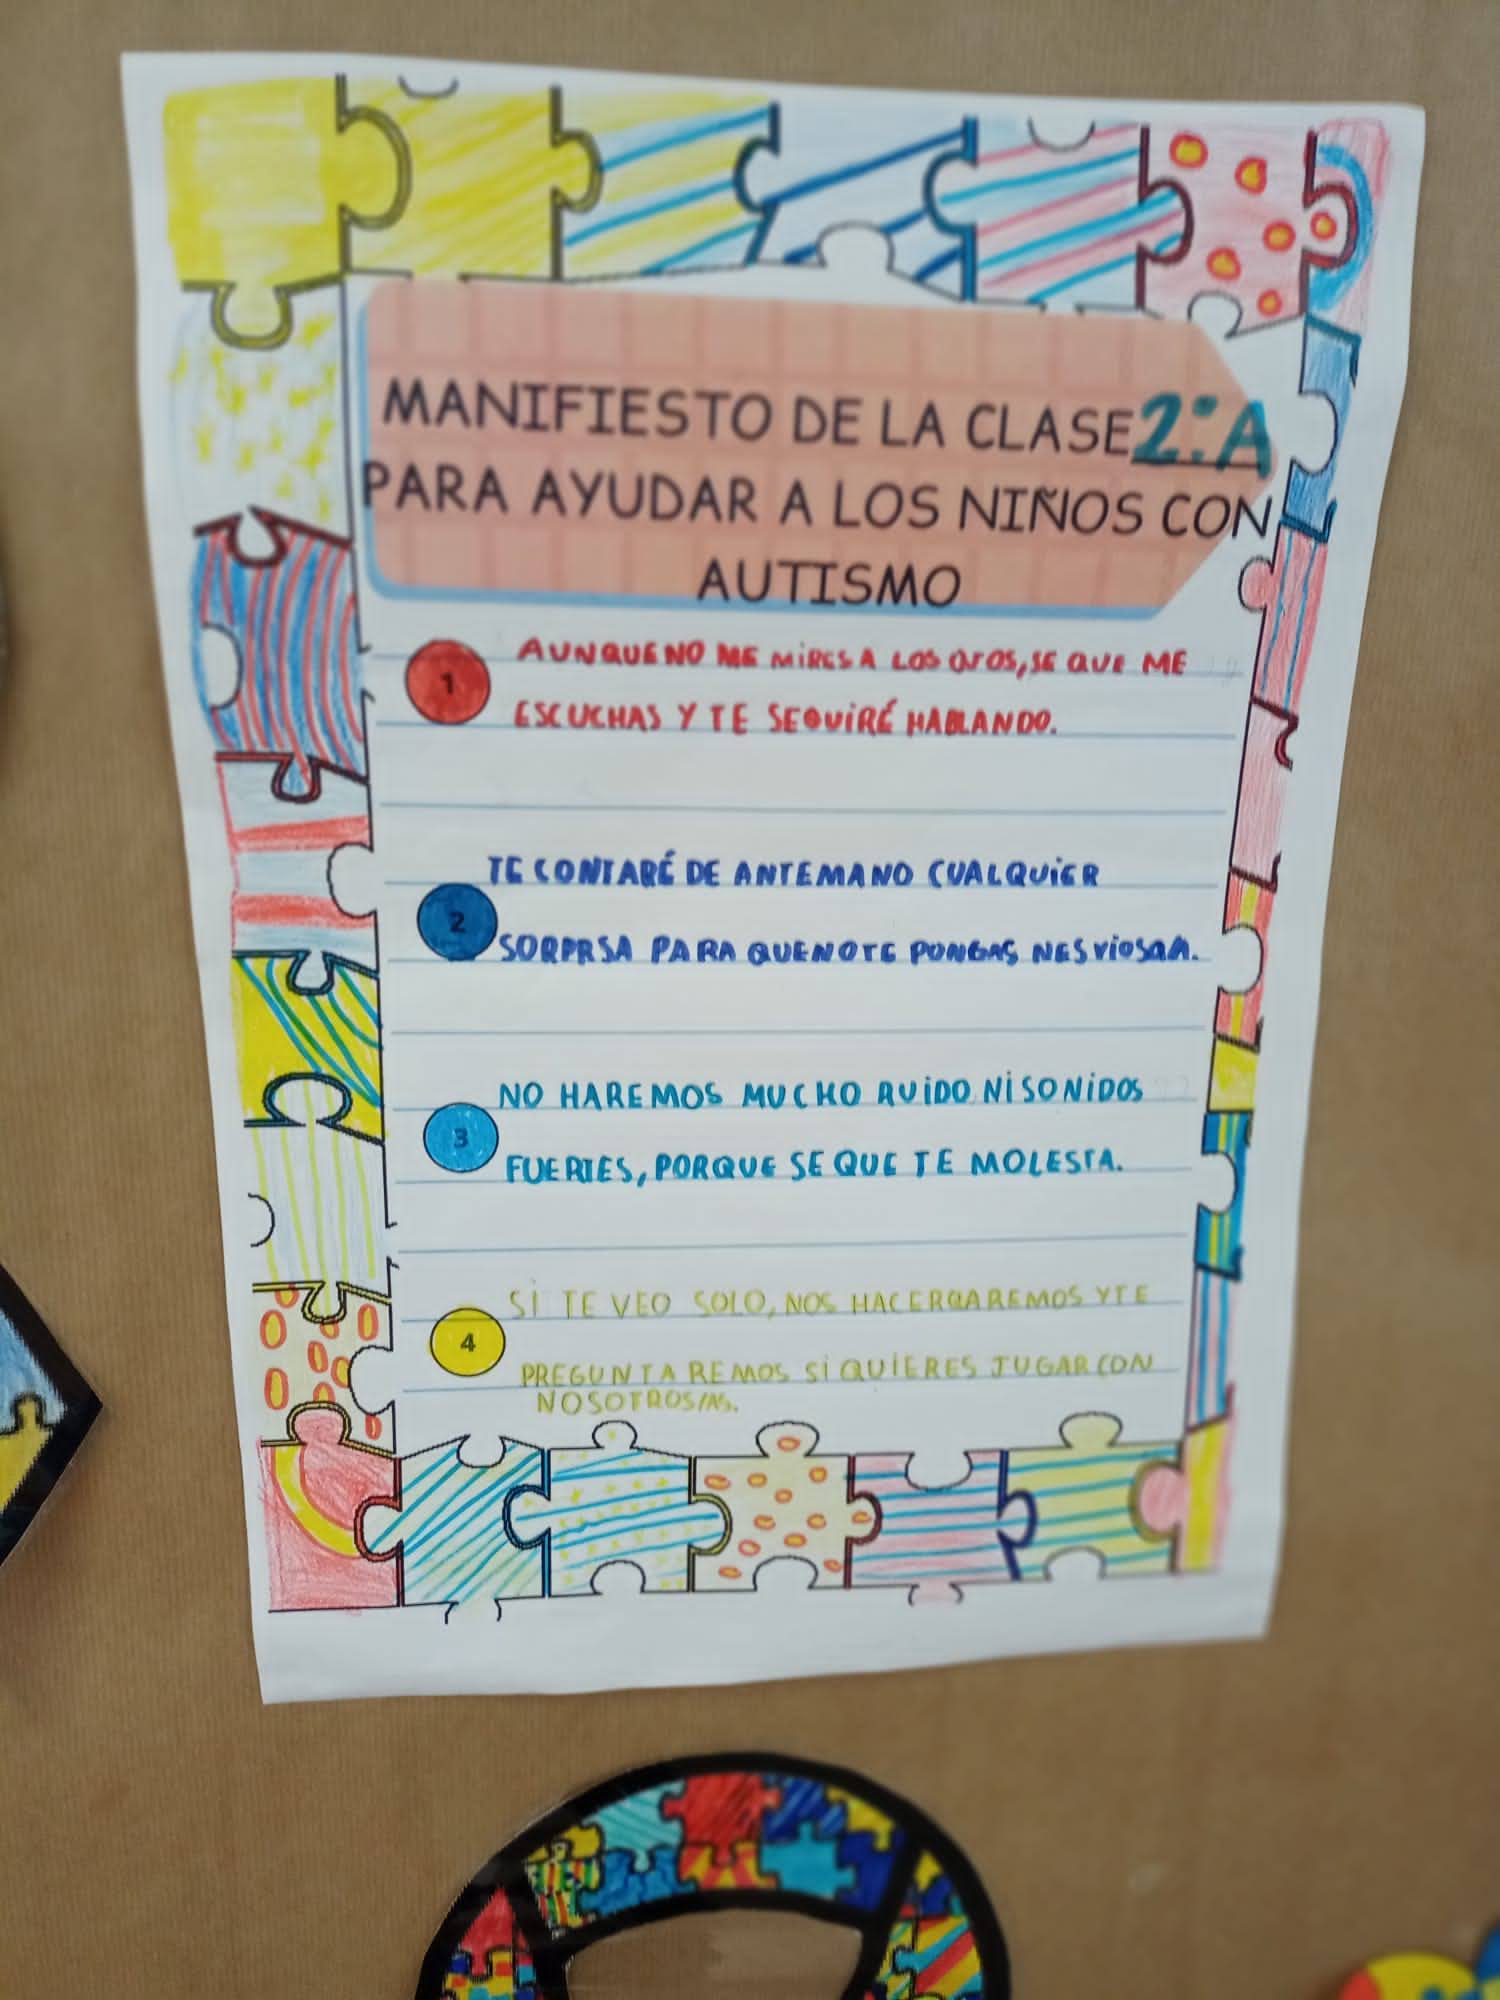 MANIFIESTO DE LA CLASE 2.ºA
PARA AYUDAR A LOS NIÑOS CON
AUTISMO
1
AUNQUE NO ME MIRES A LOS OJOS, SE QUE ME
ESCUCHAS Y TE SEGUIRÉ HABLANDO.
2
TE CONTARÉ DE ANTEMANO CUALQUIER
SORPRSA PARA QUE NO TE PONGAS
3
NO HAREMOS MUCHO RUIDO NI SONIDOS
FUERTES, PORQUE SE QUE TE MOLESTA.
4
SI TE VEO SOLO, NOS HACERQAREMOS Y TE
PREGUNTAREMOS SI QUIERES JUGAR CON
NOSOTROS/AS.